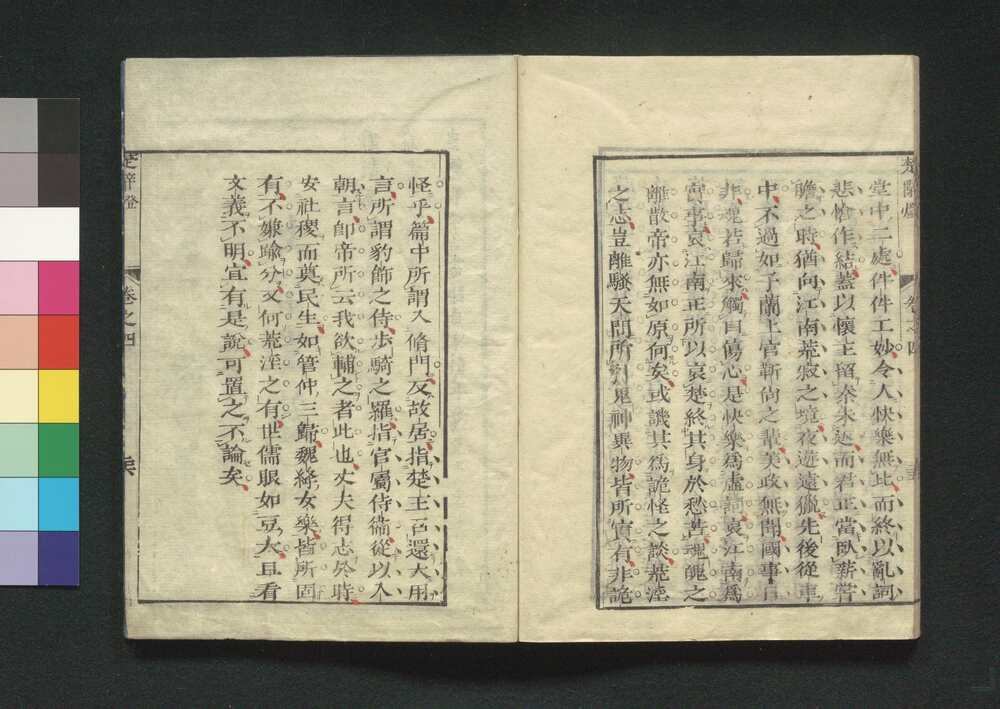 楚辭燈
堂中二處件件工妙令人快樂無比而終以亂詞
悲愴作結蓋以懷王留秦未返而君正當臥薪嘗
膽之時猶向江南荒寂之境夜遊遠獵先後從車
中不過如子蘭上官靳尚之輩美政無聞國事日
非魂若歸來觸目傷心是快樂為虛詞哀江南為
實事哀江南正所以哀楚終其身於愁苦魂魄之
離散帝亦無如原何矣或譏其為詭怪之談荒淫
之志豈離騷天問所引鬼神異物皆所實有非詭
怪乎篇中所謂入脩門反故居指楚王召還大用
言所謂豹飾之侍步騎之羅指官屬侍衞從以入
朝言卽帝所云我欲輔之者此也丈夫得志於時
安社稷而奠民生如管仲三歸魏絳女樂皆所固
有不嫌踰分又何荒淫之有世儒眼如豆大且看
文義不明宜有是說可置之不論矣
楚辭燈
卷之四